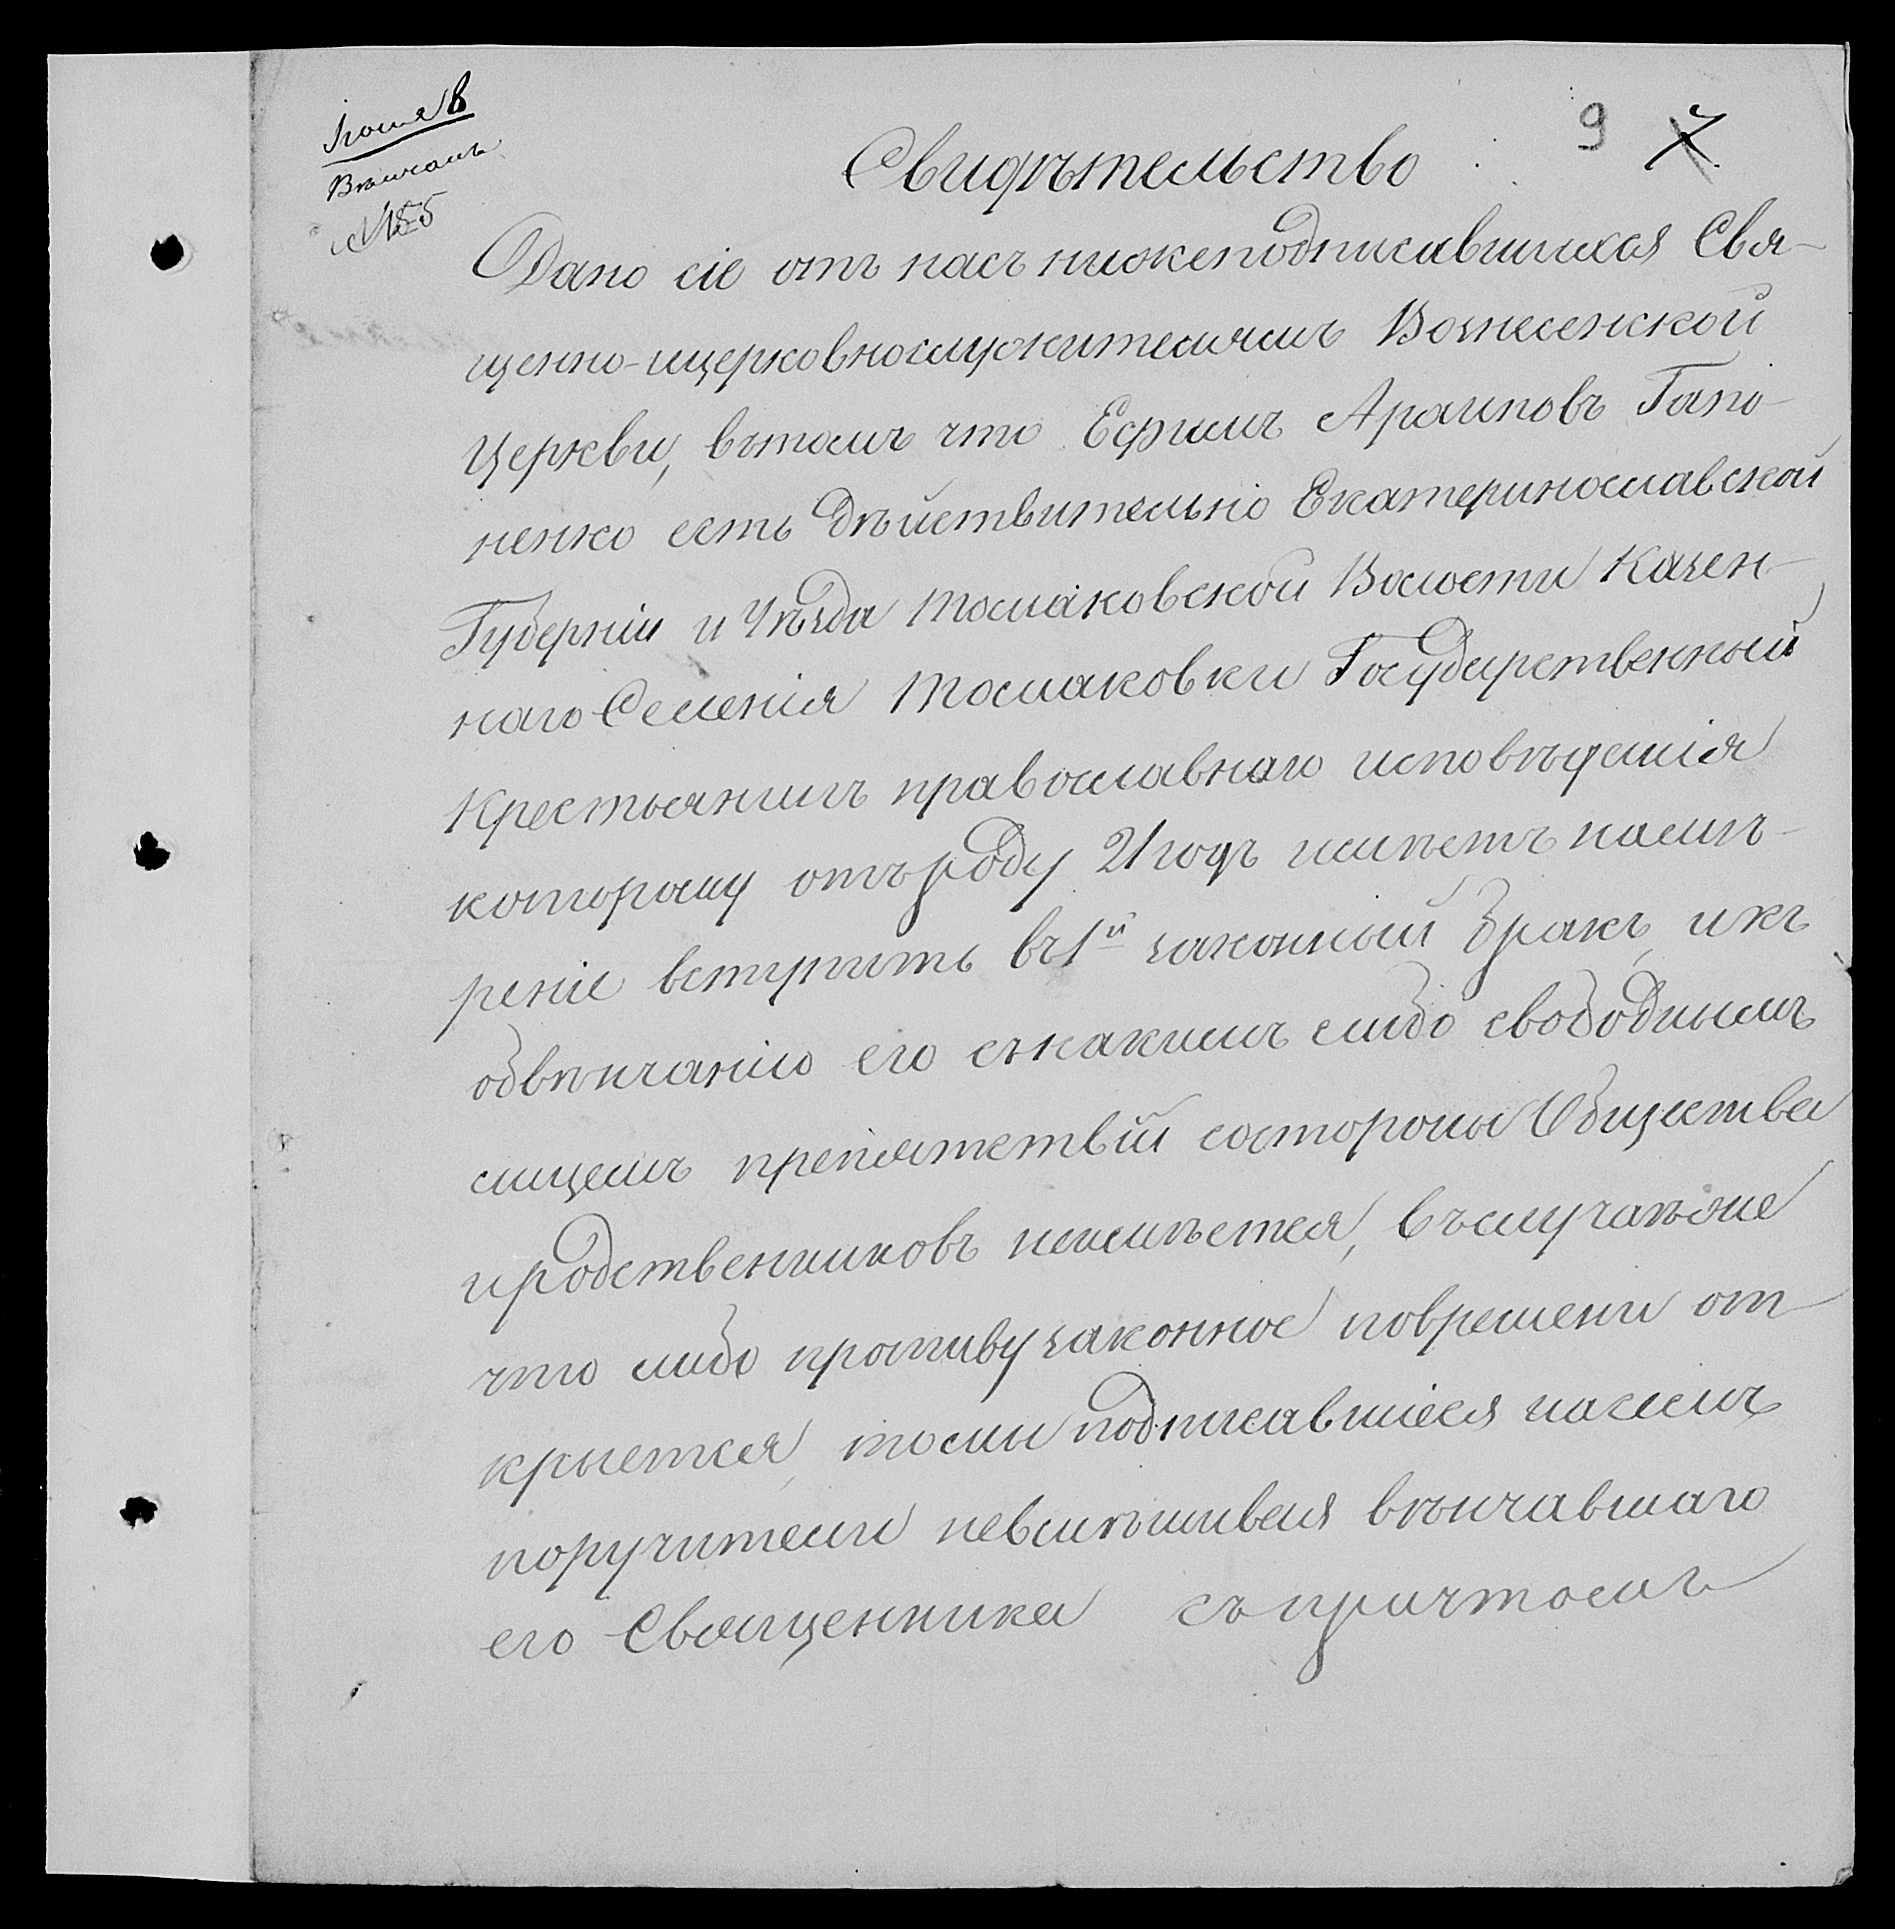 Іюля 8
Вѣнчанъ
№ 55
9 7
Свидѣтельство
Дано сіе отъ насъ нижеподписавшихся Свя-
щенно-ицерковнослужителямъ Вознесенской
Церкви, вътомъ что Ефимъ Гапо-
ненко есть дѣйствительно Екатеринославской
Губерніи и Уѣзда Томаковской Волости Казен-
наго Селенія Томаковки Государственный
Крестьянинъ православнаго исповѣданія
которому отъроду 21 годъ имѣетъ намѣ-
реніе вступить въ 1й законный бракъ, икъ
обвѣнчанію его съкакимъ либо свободнымъ
лицемъ препятствій состороны Общества
иродственниковъ неимѣется, въслучаѣже
что либо противузаконное повремени от-
крыется, томы подписавшіеся насемъ
поручители
его Священника съпричтомъ